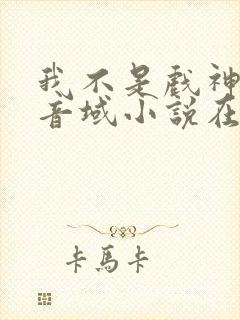 我不是戲神
音域小說在
卡馬卡